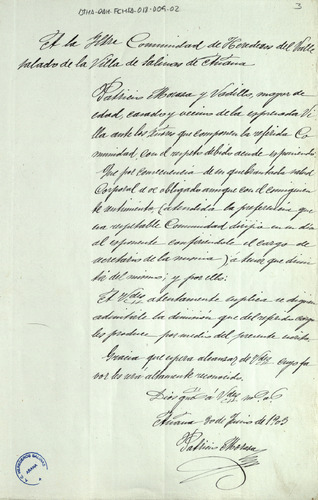 3
A la Iltre Comunidad de Herederos del Valle
salado de la Villa de Salinas de Añana
Patricio Morasa y Vadillo, mayor de
edad, casado y vecino de la expresada Vi
lla ante los Srs que componen la referida Co
munidad, con el respeto debido acude exponiendo:
Que por consecuencia de su quebrantada salud
Corporal se ve obligado aunque con el consiguien
te sentimiento, (atendida la preferencia que
esa respetable Comunidad dirijia en su dia
al esponente confiriendole el cargo de
secretario de la misma) a tener que dimi
tir del mismo; y por ello:
A Vdes atentamente suplica se dignen
admitirle la dimision que del referido cargo
les produce por medio del presente escrito
Gracia que espera alcanzar de Vdes cuyo fa
vor les será altamente reconocido.
Dios gue á Vdes m. a.
Añana 30 de Junio de 1903
Patricio Morasa